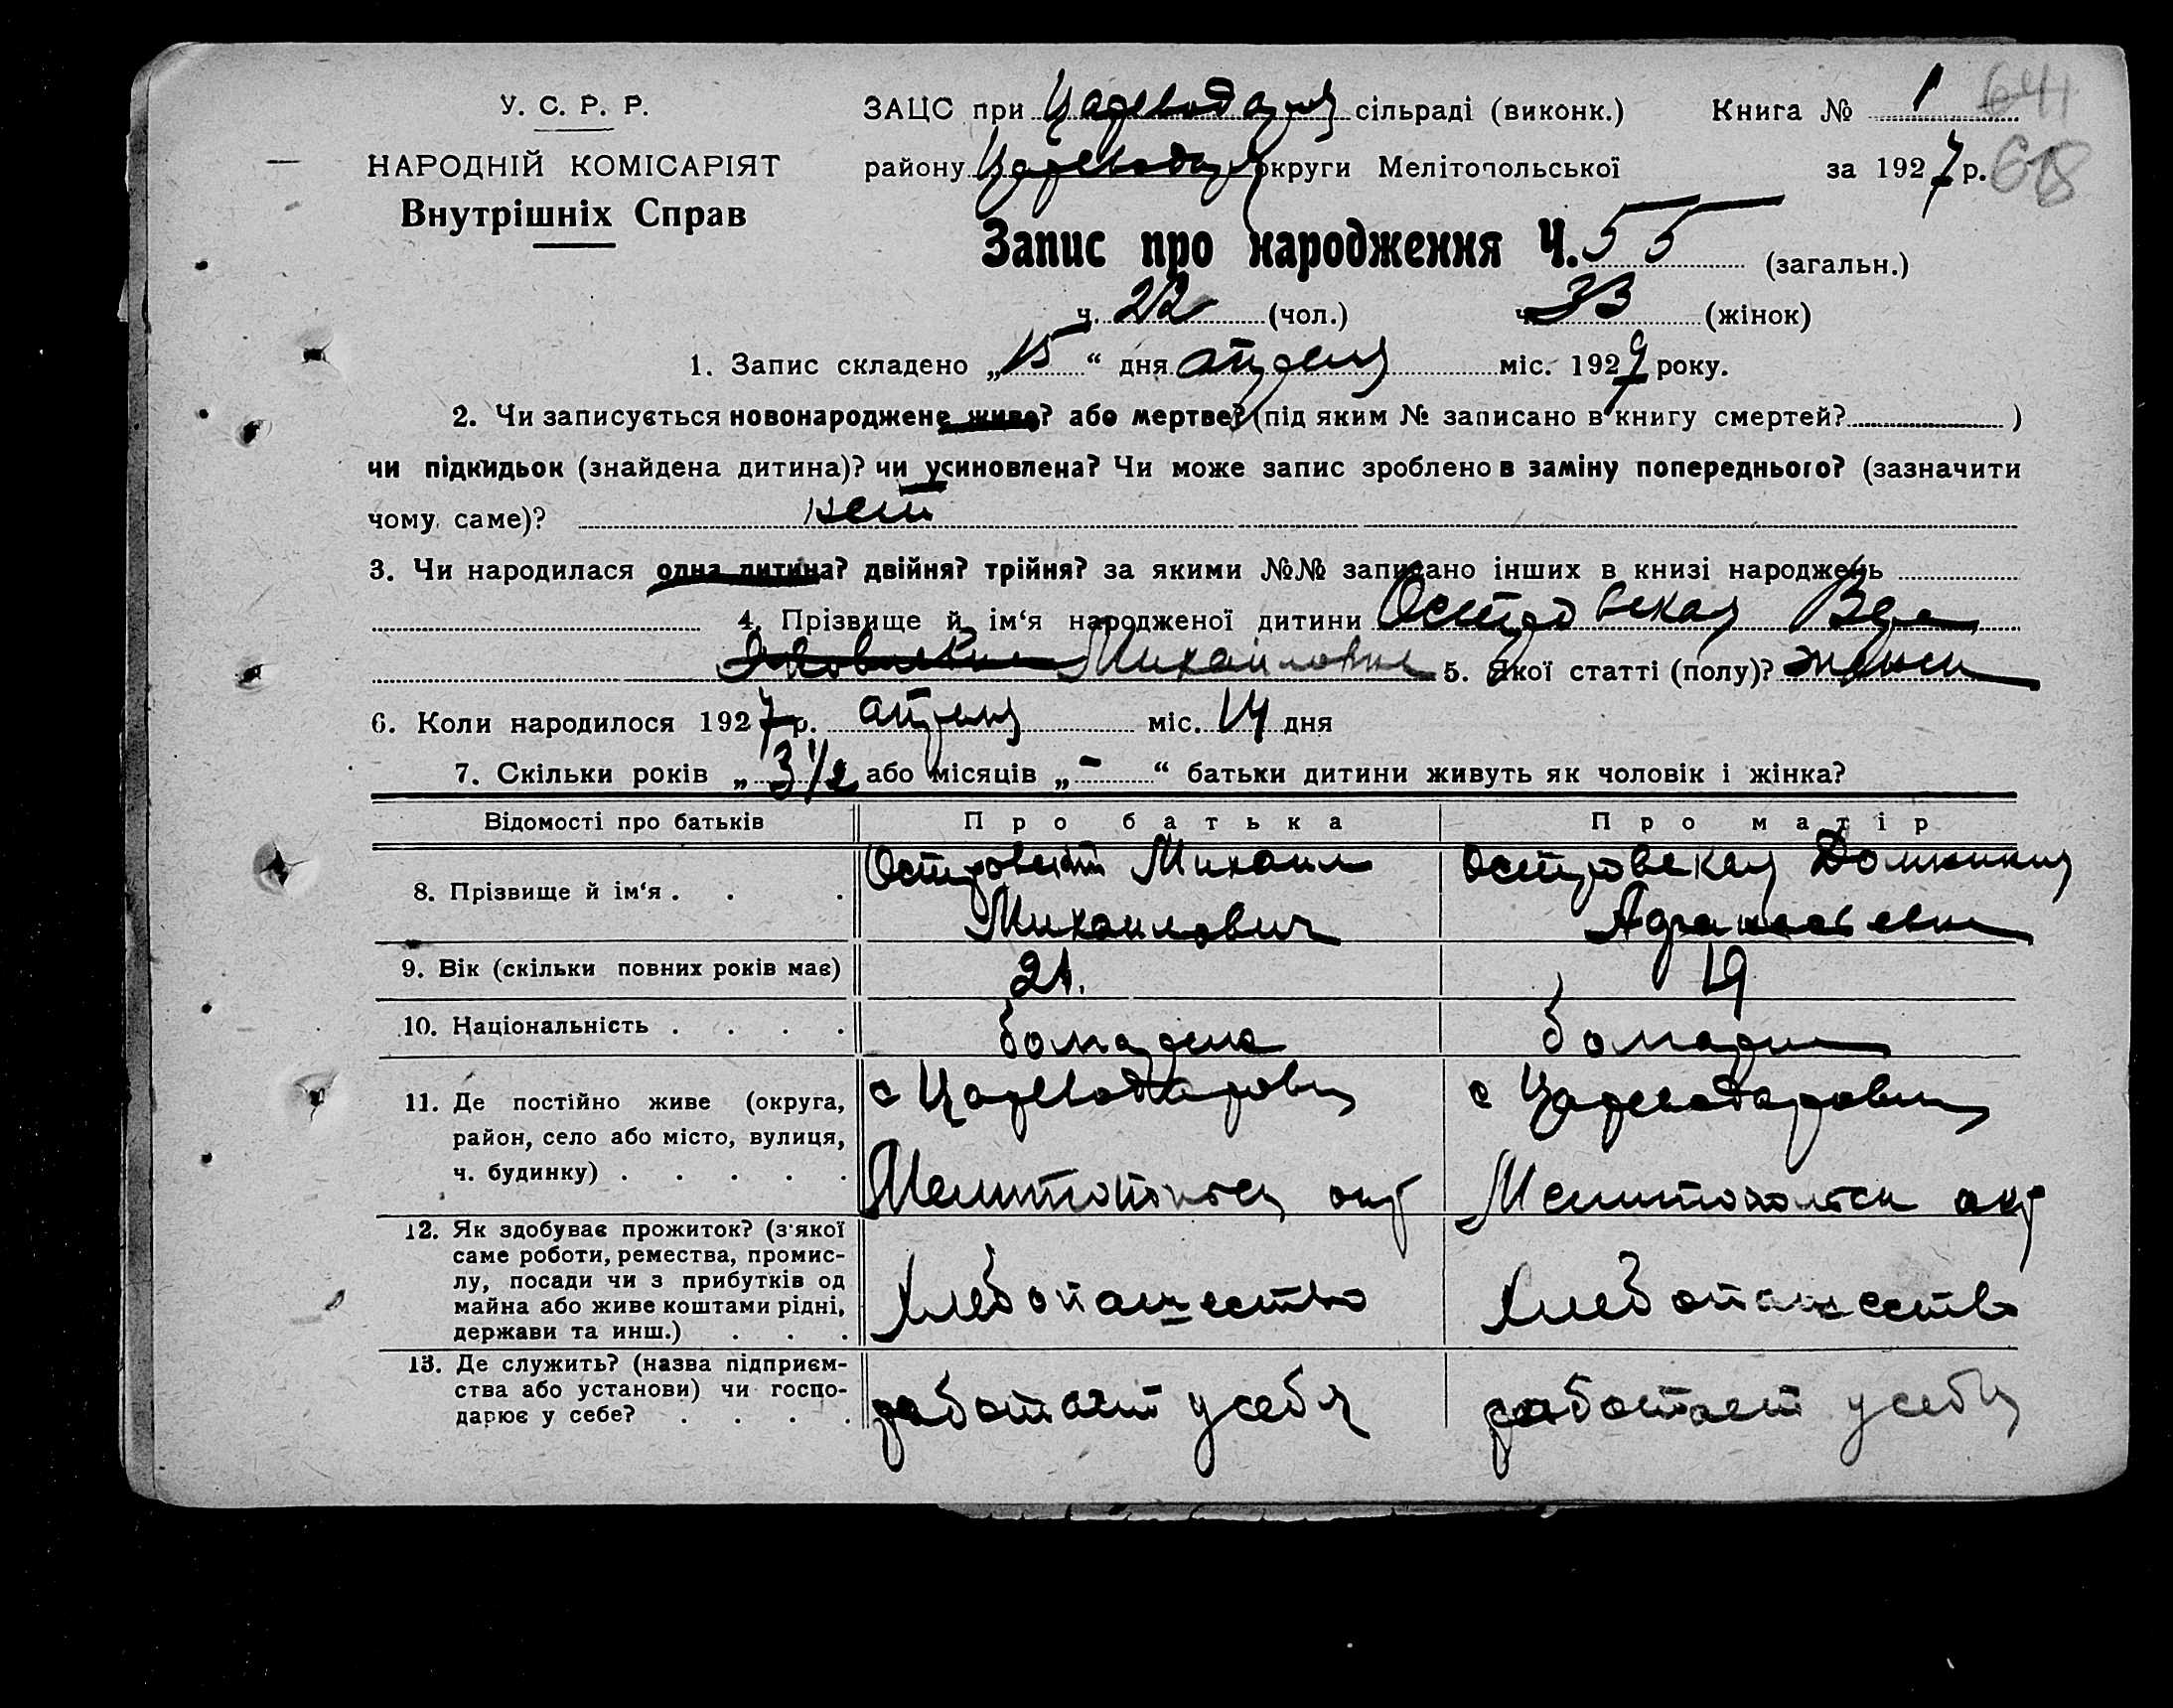 У. С. Р. Р.
НАРОДНІЙ КОМІСАРІЯТ
Внутрішніх Справ
ЗАЦС при Цареводар сільраді (виконк.) Книга № 1 641
району Цареводар округи Мелітопольської за 1927 р. 618
Запис про народження Ч. 55 (загальн.)
ч. 22 (чол.) ч. 33 (жінок)
1. Запис складено „15“ дня апреля міс. 1927 року.
2. Чи записується новонароджене живе? або мертве? (під яким № записано в книгу смертей? )
чи підкидьок (знайдена дитина)? чи усиновлена? Чи може запис зроблено в заміну попереднього? (зазначити
чому саме)? нет
3. Чи народилася одна дитина? двійня? трійня? за якими №№ записано інших в книзі народжень
4. Прізвище й ім‘я народженої дитини Островская Вера
Михайловна 5. Якої статті (полу)? женск
6. Коли народилося 1927 р. апреля міс. 14 дня
7. Скільки років „3 1/2 або місяців „-“ батьки дитини живуть як чоловік і жінка?
Відомості про батьків Про батька Про матір
8. Прізвище й ім‘я . . . Островский Михаил Михаилович Островская Домникия
9. Вік (скільки повних років має) 21. 19
10. Національність . . . . болгарена болгарен
11. Де постійно живе (округа, район, село або місто, вулиця, ч. будинку) . . . . . с Цареводаровка Мелитопольск окр с Цареводаровка Мелитопольск окр
12. Як здобуває прожиток? (з'якої саме роботи, ремества, промис-
лу, посади чи з прибутків од майна або живе коштами рідні, держави та инш.) . . . Хлебопашество Хлебопашество
13. Де служить? (назва підприєм-
ства або установи) чи госпо-
дарює у себе? . . . . работает у себя работает у себя